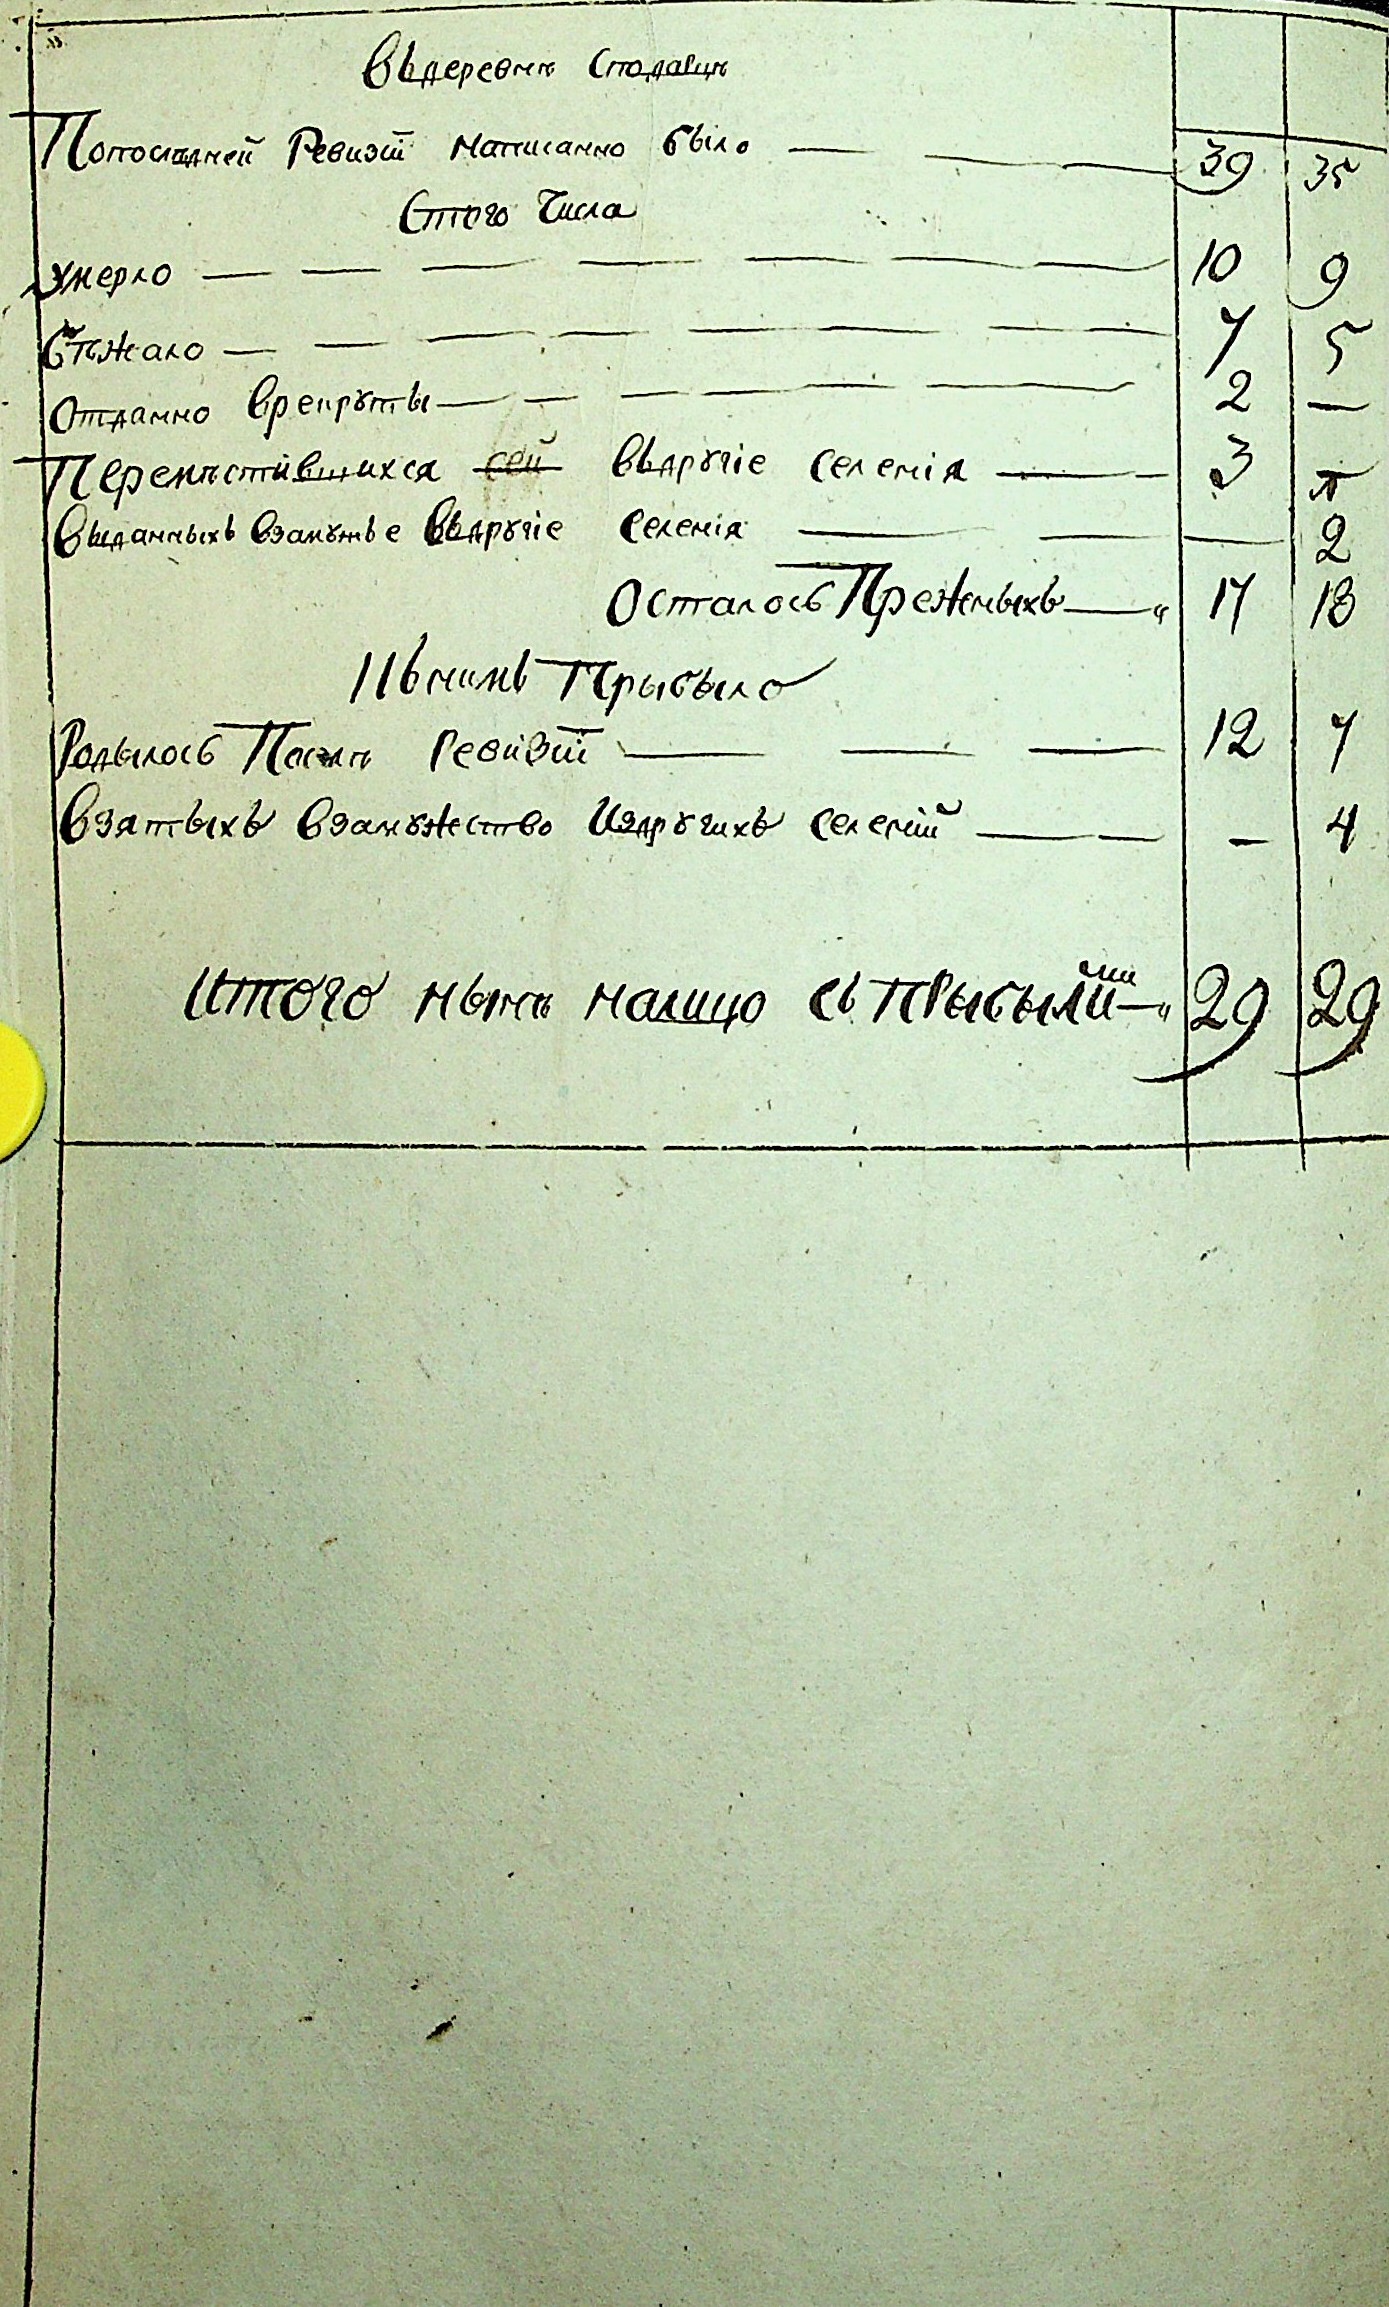 Въдеревнѣ Сподарцѣ
Попослѣдней Ревизїи написанно было 39 35
Стого Числа
умерло 10 9
Бѣжало 7 5
Отданно врекруты 2 —
Перемѣстившихся сей въдругіе селенія 3
Выданныхъ взамужъе въдругіе селенія — 2
Осталось Прежныхъ 17 18
Ііъ нимъ Прыбыло
Родылось Послѣ Ревизїи 12 7
Взятыхъ взамужество Издругихъ селеній — 4
Итого нынѣ налицо съ Прыбылими 29 29